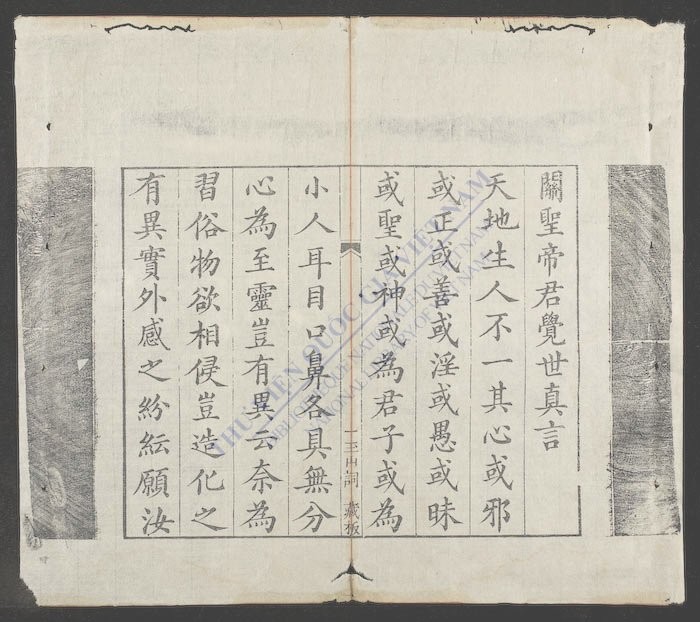 關聖帝君覺世真言
天地生人不一其心或邪
或正或善或淫或愚或昧
或聖或神或為君子或為
藏板
小人耳目口鼻各具無分
心為至靈豈有異云奈為
習俗物欲相侵豈造化之
有異實外感之紛紜願汝
THƯ VIỆN QUỐC GIA VIỆT NAM
BIBLIOTHÈQUE NATIONALE DU VIET NAM
NATIONAL LIBRARY OF VIET NAM